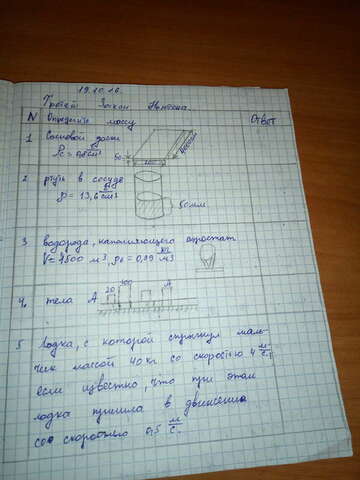 19.10.16.
Третий Закон Ньютона.
N Определить массу Ответ
1 Сосновой доски
50
2 ртуть в сосуде
ρ = 13,6 г/см³
50мм
3 водорода, наполняющего аэростат
V = 1500 м³, ρв = 0,09 кг/м³
4. тела А 20 100 А
5 Лодка, с которой спрыгнул маль-
чик массой 40 кг со скоростью 4 м/с
если известно, что при этом
лодка пришла в движение
со скоростью 0,5 м/с